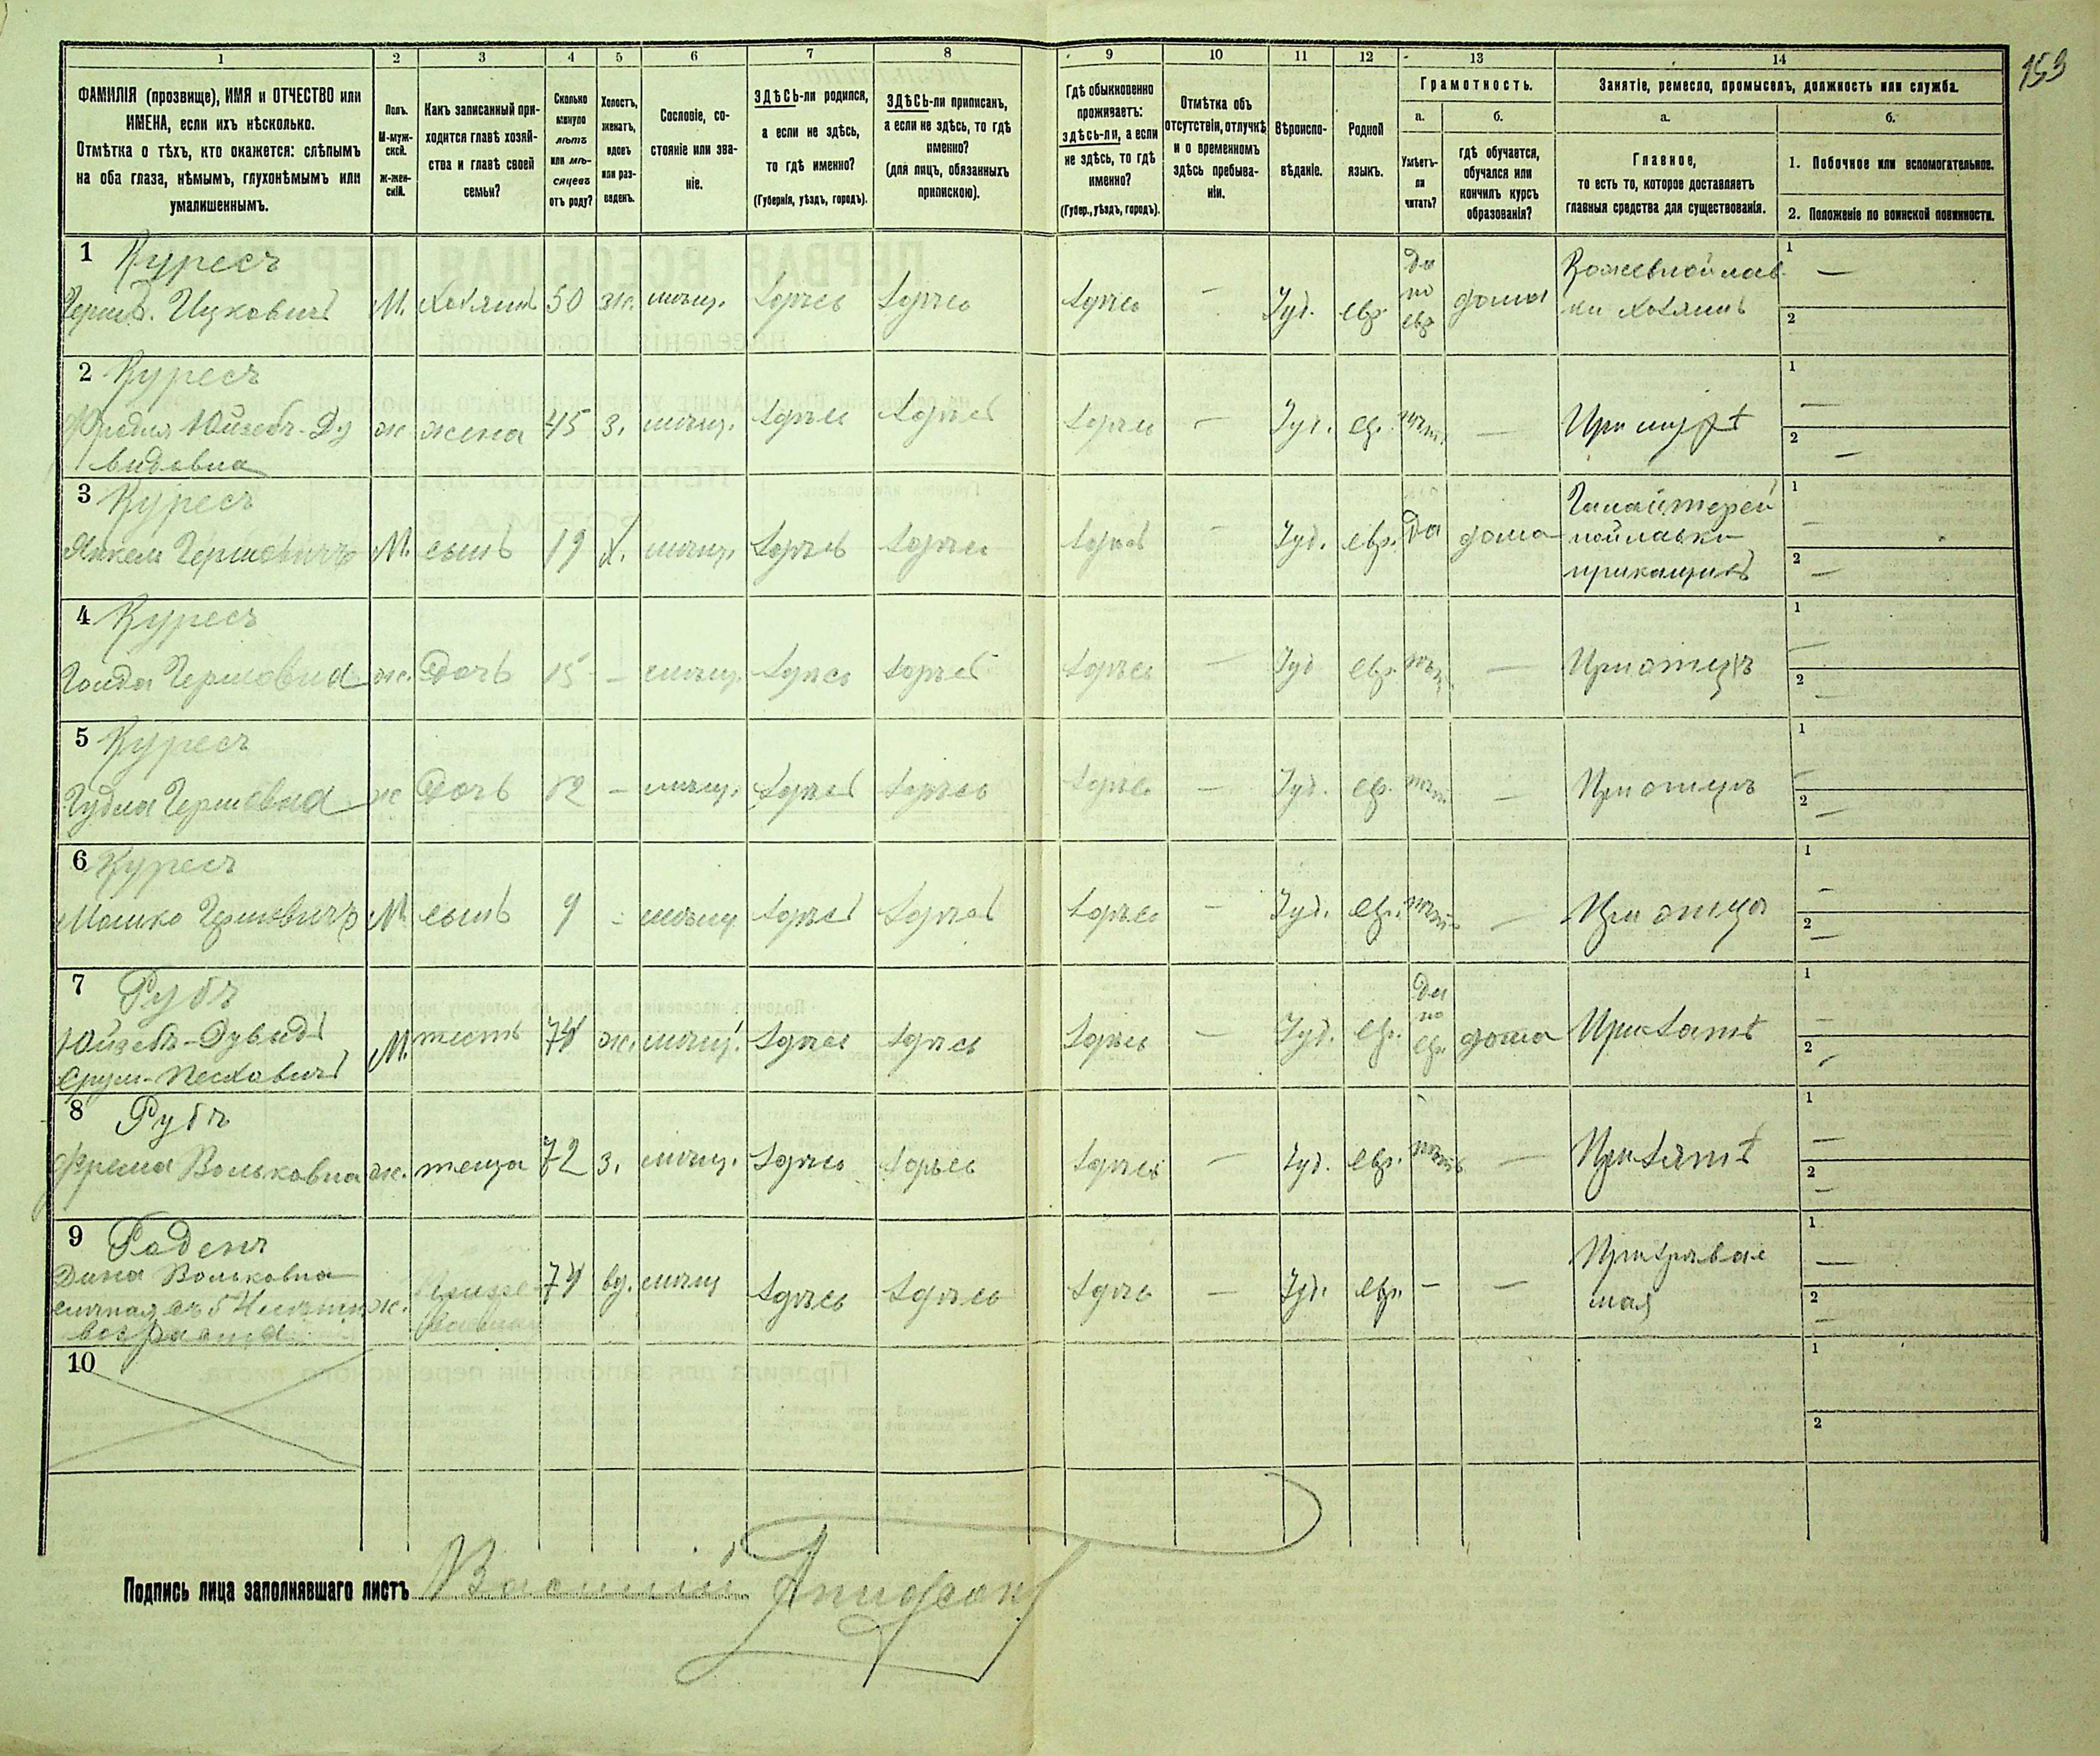 153
1
2
3
4
5
6
7
8
9
10
11
12
13
14
ФАМИЛІЯ (прозвище), ИМЯ и ОТЧЕСТВО или
ИМЕНА, если ихъ нѣсколько.
Отмѣтка о тѣхъ, кто окажется: слѣпымъ
на оба глаза, нѣмымъ, глухонѣмымъ или
умалишеннымъ.
Полъ.
М-муж-
ской.
ж-жен-
скій.
Какъ записанный при-
ходится главѣ хозяй-
ства и главѣ своей
семьи?
Сколько
минуло
лѣтъ
или мѣ-
сяцевъ
отъ роду?
Холостъ,
женатъ,
вдовъ
или раз-
веденъ.
Сословіе, со-
стояніе или зва-
ніе.
ЗДѢСЬ-ли родился,
а если не здѣсь,
то гдѣ именно?
(Губернія, уѣздъ, городъ).
ЗДѢСЬ-ли приписанъ,
а если не здѣсь, то гдѣ
именно?
(для лицъ, обязанныхъ
припискою).
Гдѣ обыкновенно
проживаетъ:
здѣсь-ли, а если
не здѣсь, то гдѣ
именно?
(Губер., уѣздъ, городъ).
Отмѣтка объ
отсутствіи, отлучкѣ
и о временномъ
здѣсь пребыва-
ніи.
Вѣроиспо-
вѣданіе.
Родной
языкъ.
Грамотность.
а.
Умѣетъ-
ли
читать?
б.
гдѣ обучается,
обучался или
кончилъ курсъ
образованія?
Занятіе, ремесло, промыселъ, должность или служба.
а.
Главное,
то есть то, которое доставляетъ
главныя средства для существованія.
б.
1. Побочное или вспомогательное.
2. Положеніе по воинской повинности.
1 Куресъ
Ицковичъ М. хозяинъ 50 ж. мѣщ. здѣсь здѣсь здѣсь — Іуд. евр. Да по евр. дома Кожевной лав-
ки хозяинъ
1 —
2
2 Куресъ
Фрейдля Юйзебъ-Ду
видовна ж жена 45 з. мѣщ. здѣсь здѣсь здѣсь — Іуд. евр. нѣтъ — При мужѣ
1 —
2 —
3 Куресъ
Янкель Гершовичъ М. сынъ 19 х. мѣщ. здѣсь здѣсь здѣсь — Іуд. евр. Да дома Галантерей
ной лавки
прикащикъ
1 —
2 —
4 Куресъ
Голда Гершовна ж. дочь 15 — мѣщ. здѣсь здѣсь здѣсь — Іуд евр. нѣтъ — При отцѣ
1 —
2 —
5 Куресъ
Гершовна ж дочь 12 — мѣщ. здѣсь здѣсь здѣсь — Іуд. евр. нѣтъ — При отцѣ
1 —
2 —
6 Куресъ
Мошко Гершовичъ М сынъ 9 - мѣщ здѣсь здѣсь здѣсь — Іуд. евр. нѣтъ — При отцѣ
1 —
2 —
7 Рубъ
Юйзебъ-Дувидъ
Срул-Песховичъ М. тесть 74 ж. мѣщ. здѣсь здѣсь здѣсь — Іуд. евр. Да по евр. дома При зятѣ
1 —
2 —
8 Рубъ
Фрейма Вольковна ж. теща 72 з. мѣщ. здѣсь здѣсь здѣсь — Іуд. евр. нѣтъ — При зятѣ
1 —
2 —
9 Роденъ
Дина Вольковна
слѣпая съ 5
возраста ж. 74 вд. мѣщ здѣсь здѣсь здѣсь — Іуд. евр. — — Призрѣвае
мая
1 —
2 —
10
1
2
Подпись лица заполнявшаго листъ Василій